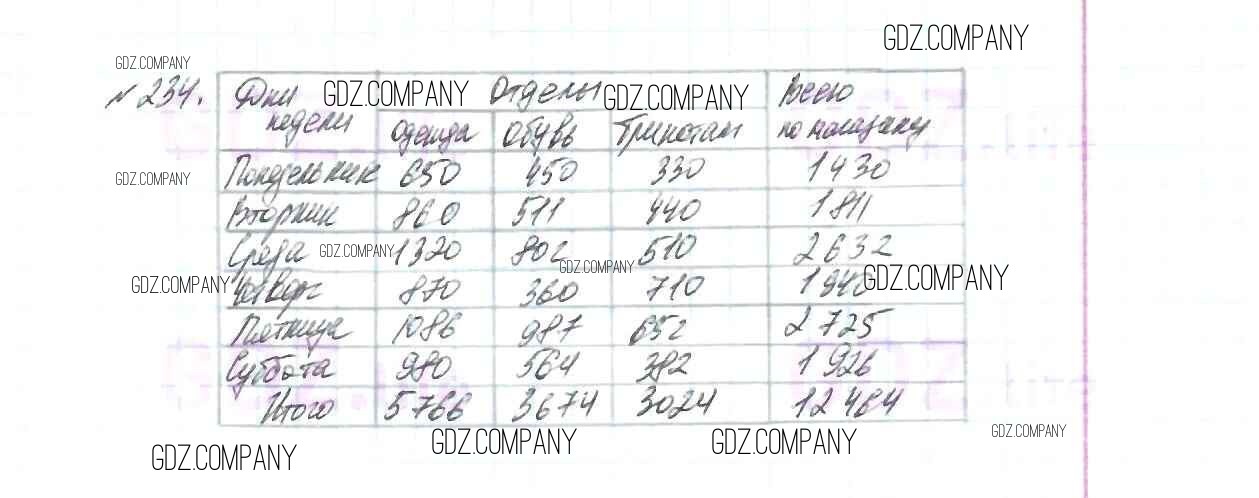 GDZ.COMPANY
GDZ.COMPANY
№ 234. Дни недели GDZ.COMPANY Отделы GDZ.COMPANY Всего по магазину
Одежда Обувь Трикотаж
GDZ.COMPANY Понедельник 650 450 330 1430
Вторник 860 511 440 1811
Среда GDZ.COMPANY 1320 802 510 2632
GDZ.COMPANY
GDZ.COMPANY Четверг 870 360 710 1940 GDZ.COMPANY
Пятница 1086 987 652 2725
Суббота 980 564 382 1926
Итого 5766 3674 3024 12464
GDZ.COMPANY GDZ.COMPANY GDZ.COMPANY
GDZ.COMPANY